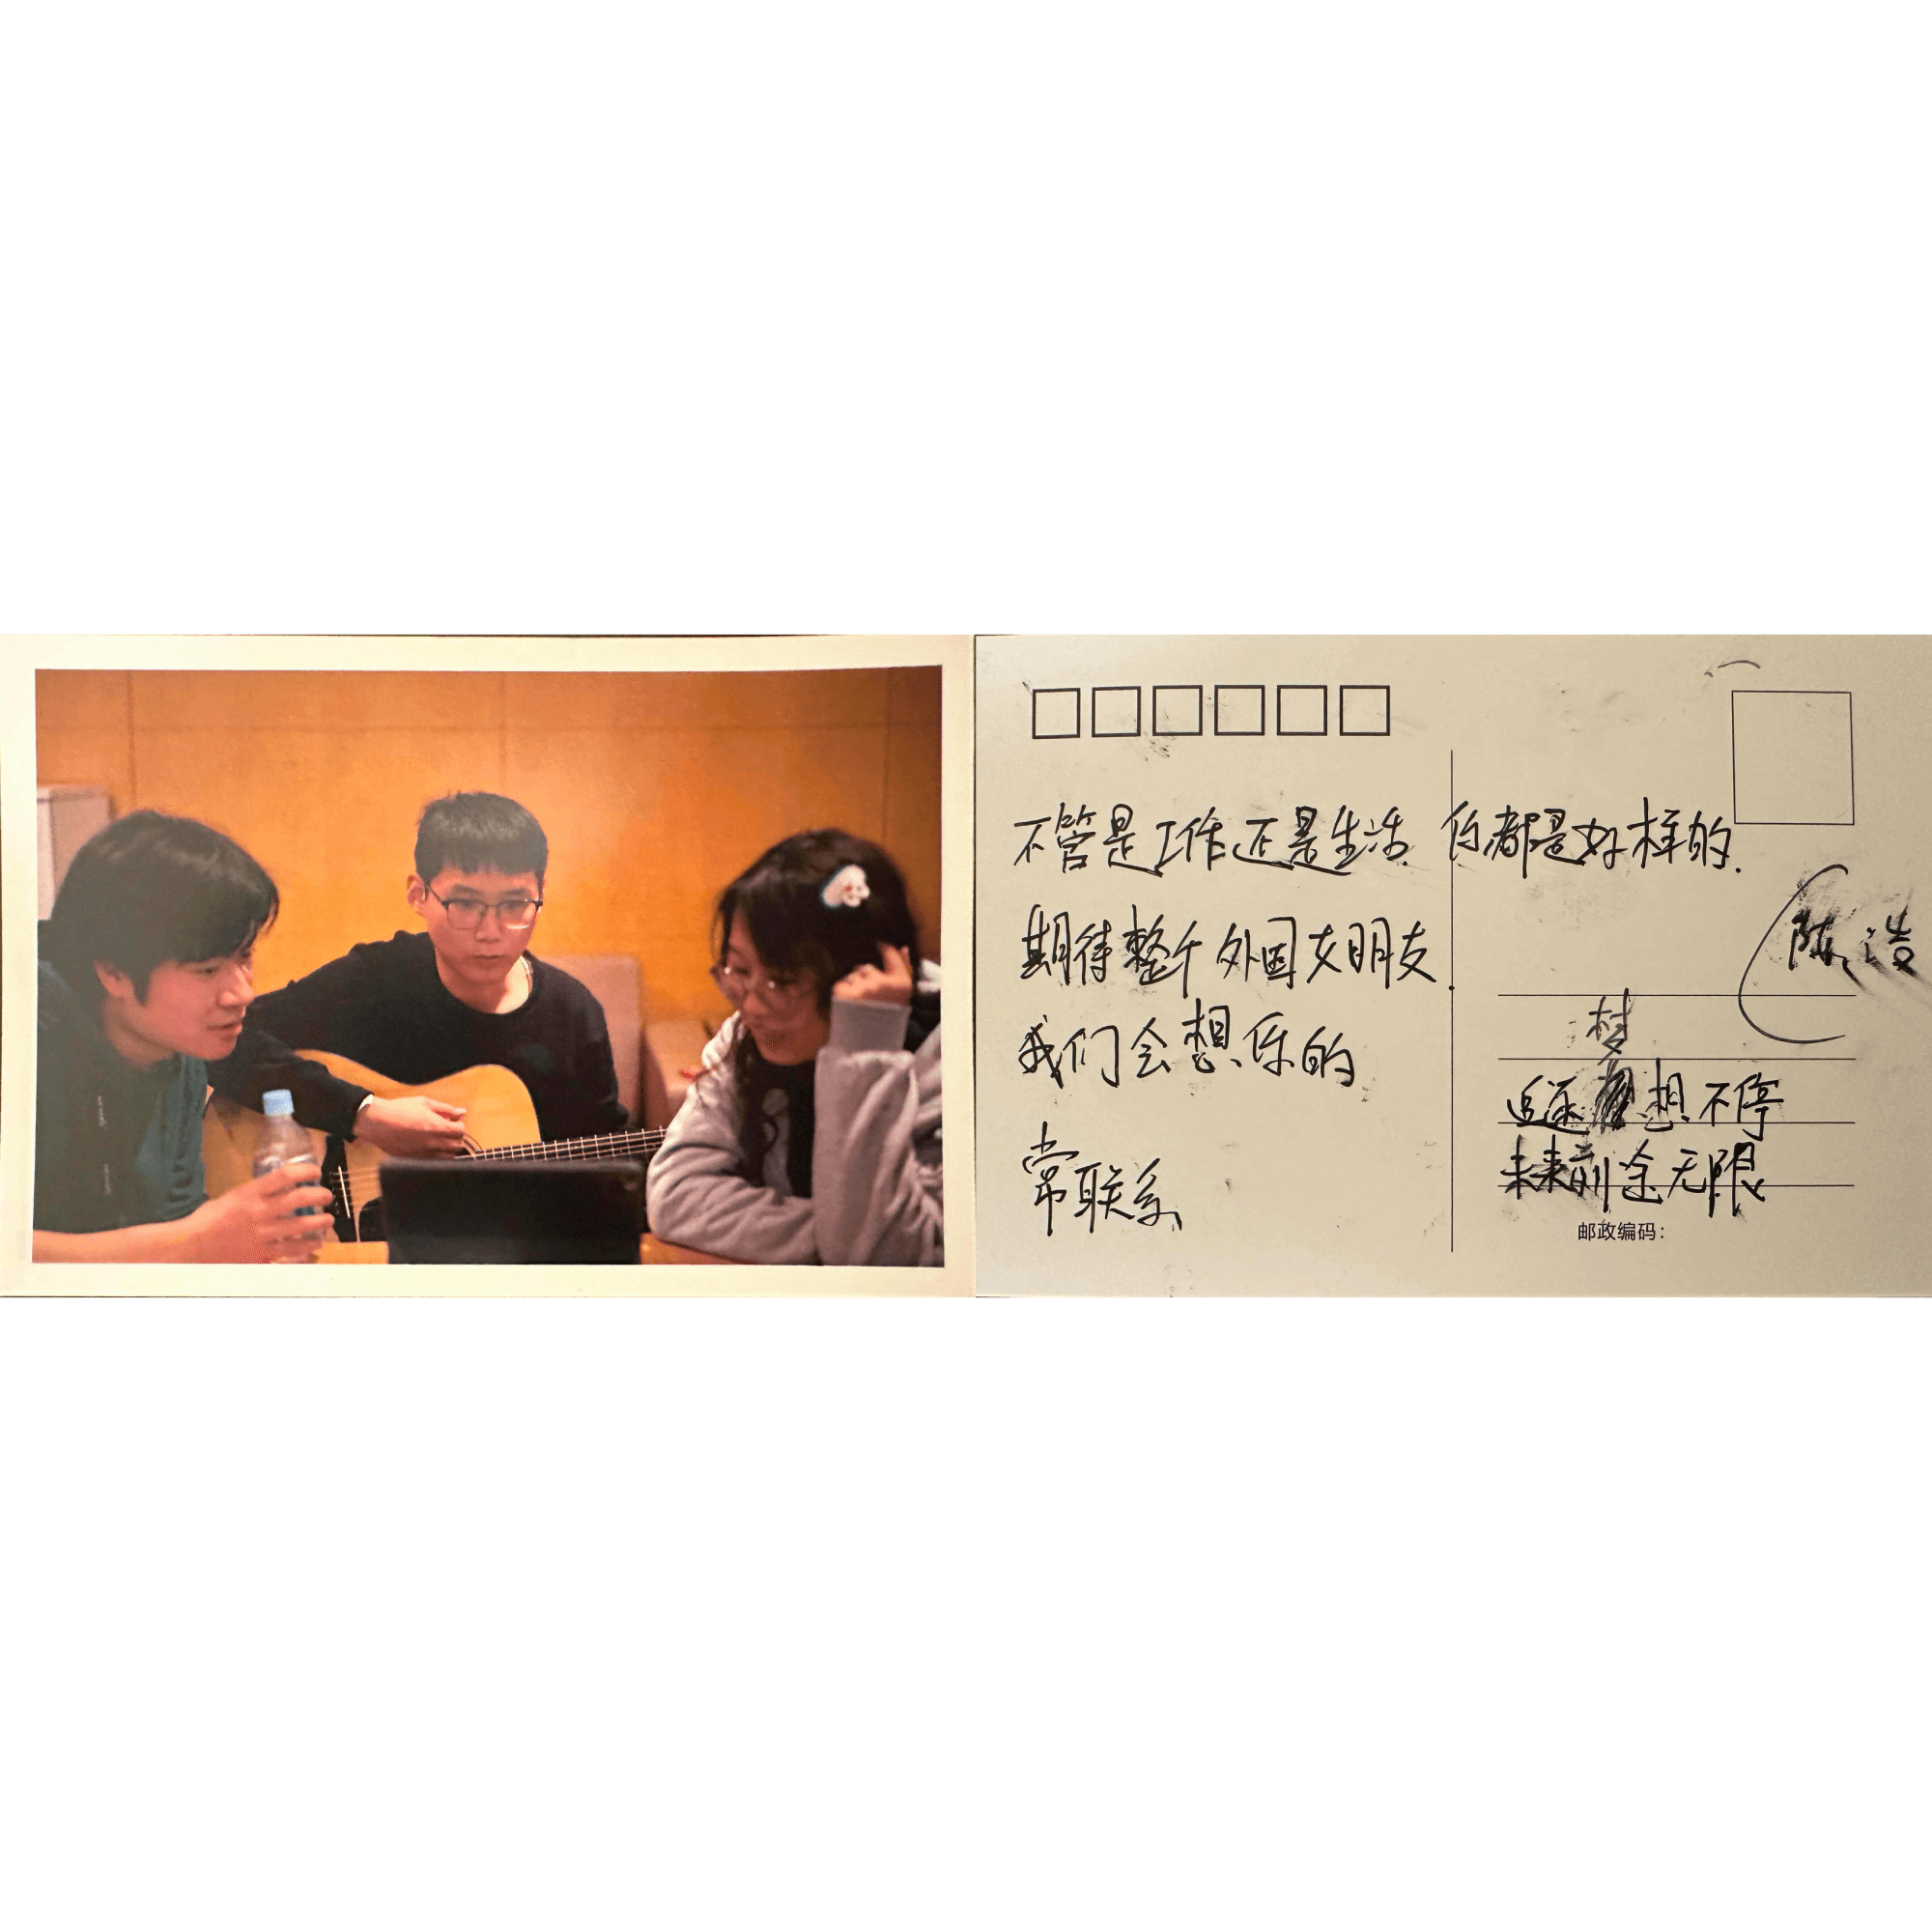 不管是工作还是生活 你都是好样的.
期待整个外国女朋友.
我们会想你的
常联系
陈浩
梦
追逐 想不停
未来前途无限
邮政编码：